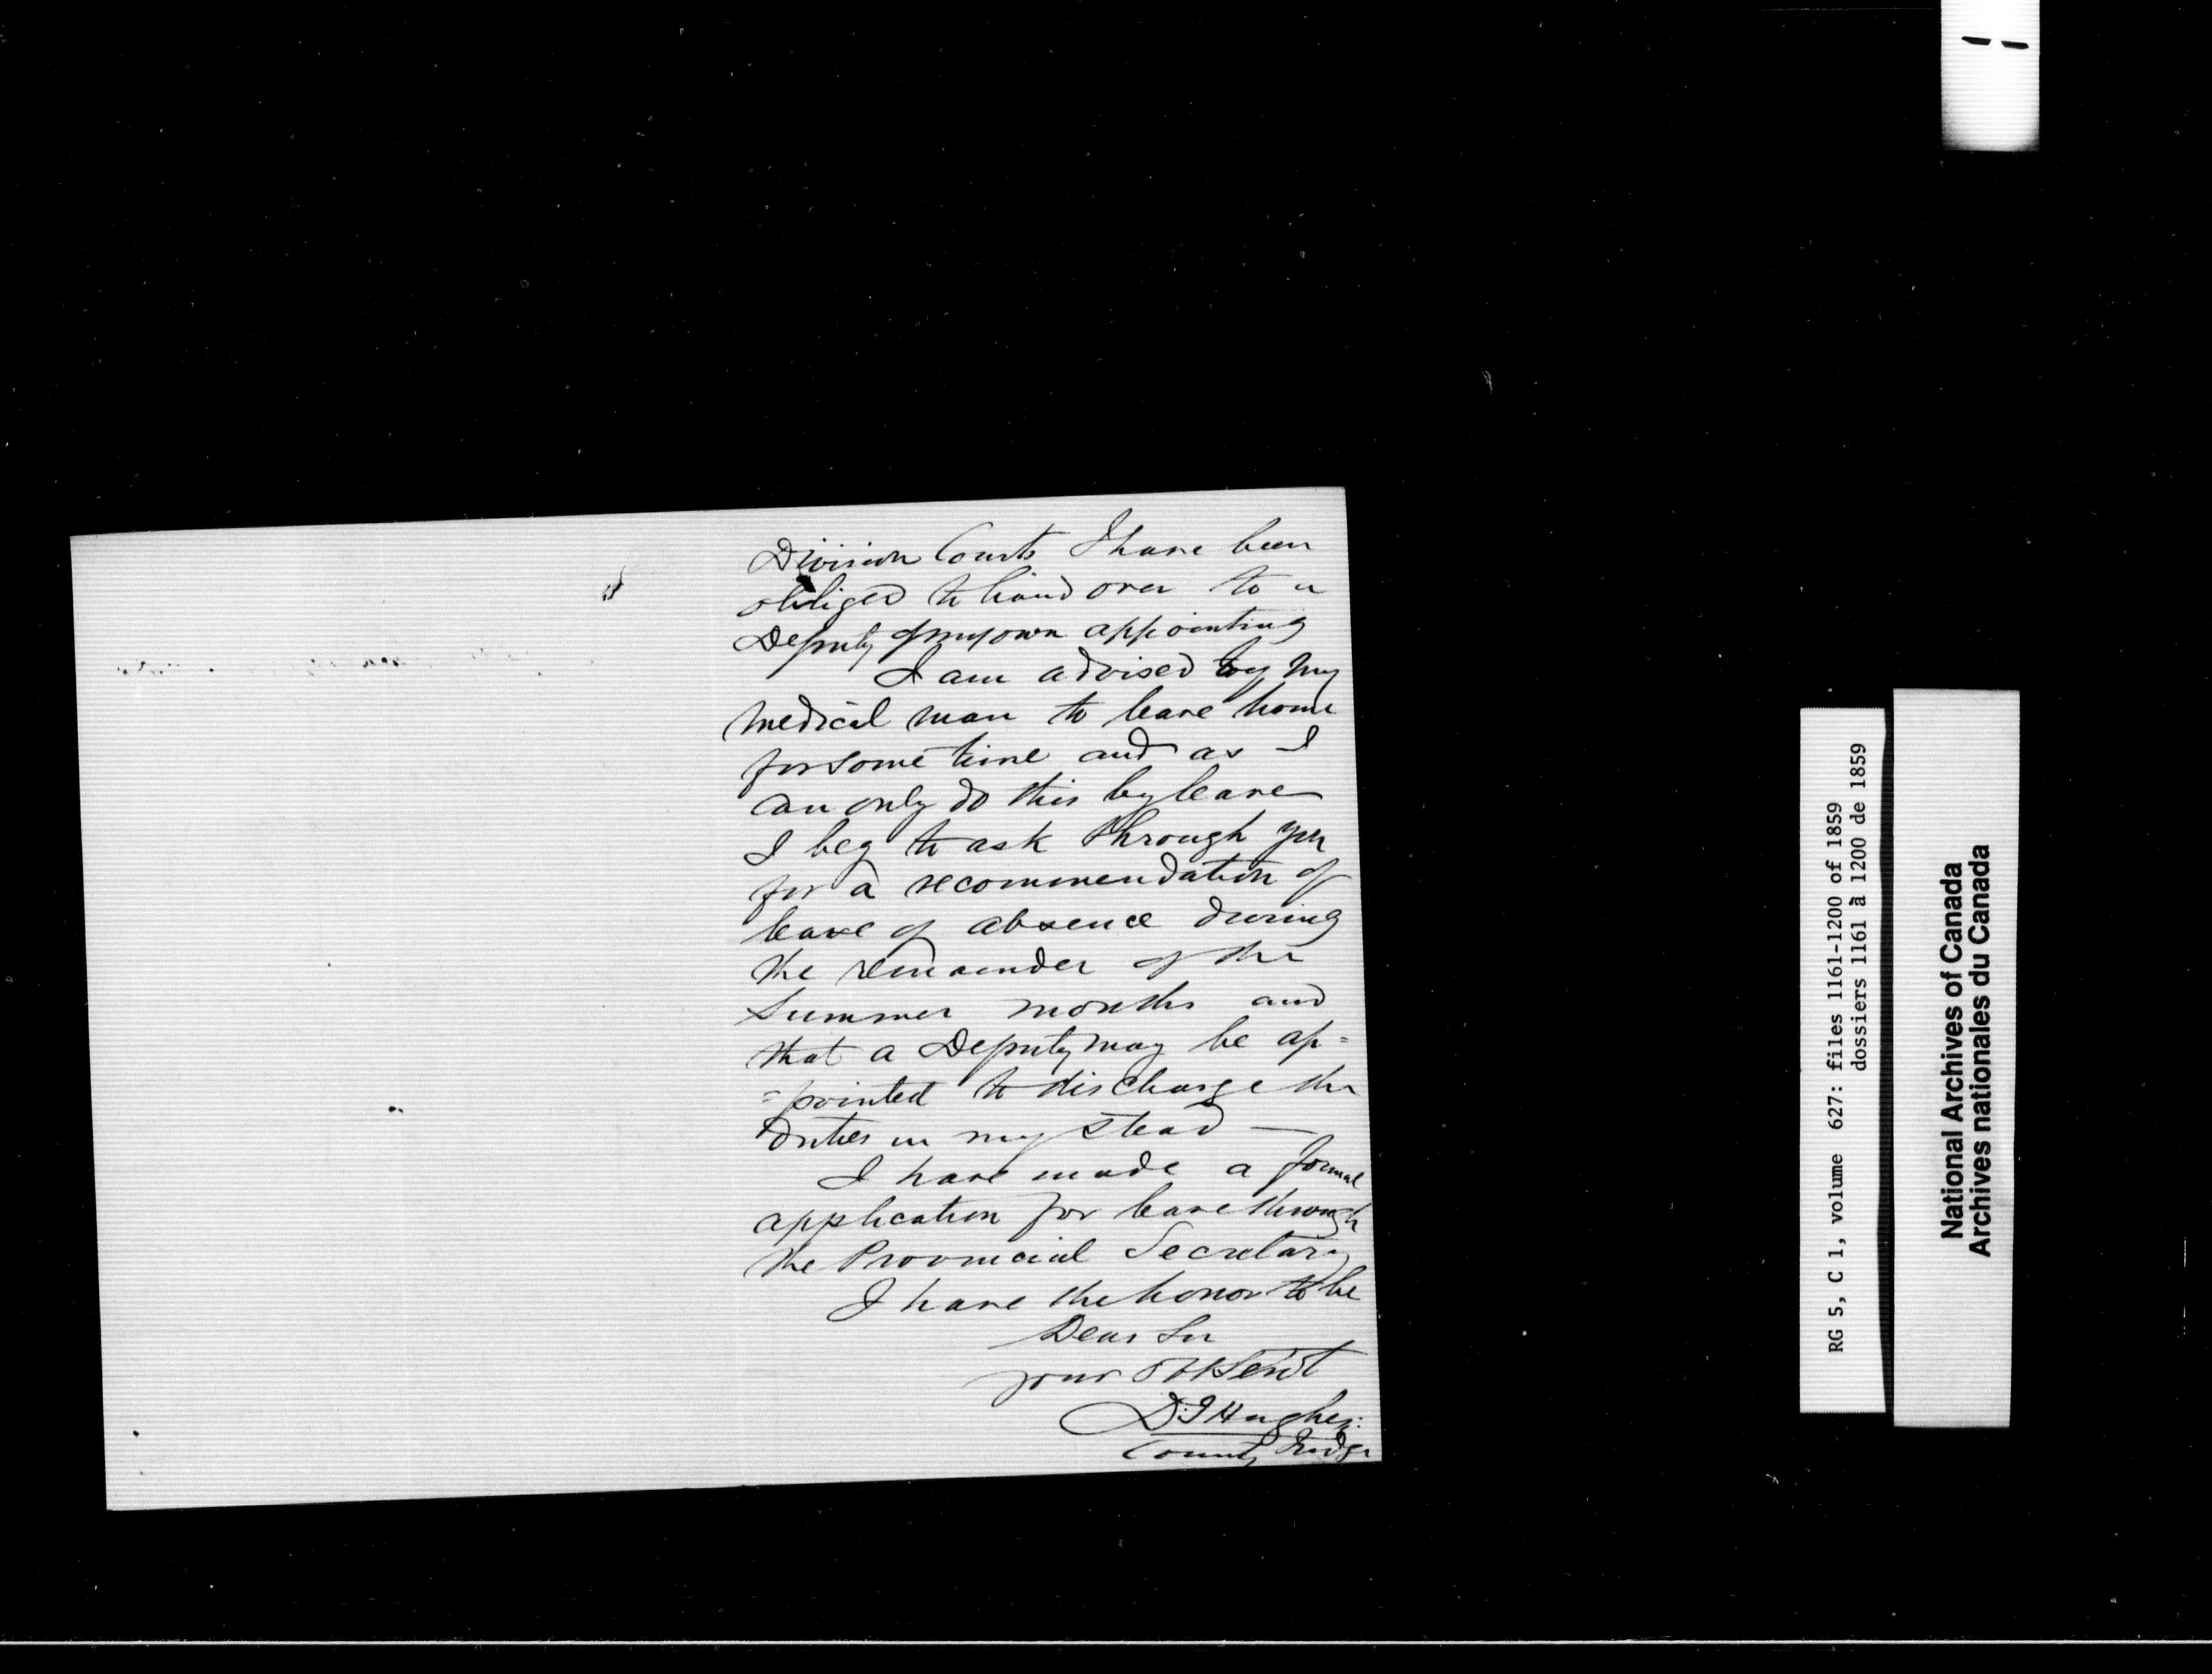 Division Courts I have been
obliged to hand over to a
Deputy of my own appointing
I am advised by my
medical man to leave home
for some time and as I
can only do this by leave
I beg to ask through you
for a recommendation of
leave of absence during
the remainder of the
Summer months and
that a Deputy may be ap=
=pointed to discharge the
duties in my stead —
I have made a formal
application for leave through
the Provincial Secretary
I have the honor to be
Dear Sir
your Ob Servt
D. J Hughes:
County Judge
RG 5, C 1, volume 627: files 1161-1200 of 1859
dossiers 1161 à 1200 de 1859
National Archives of Canada
Archives nationales du Canada